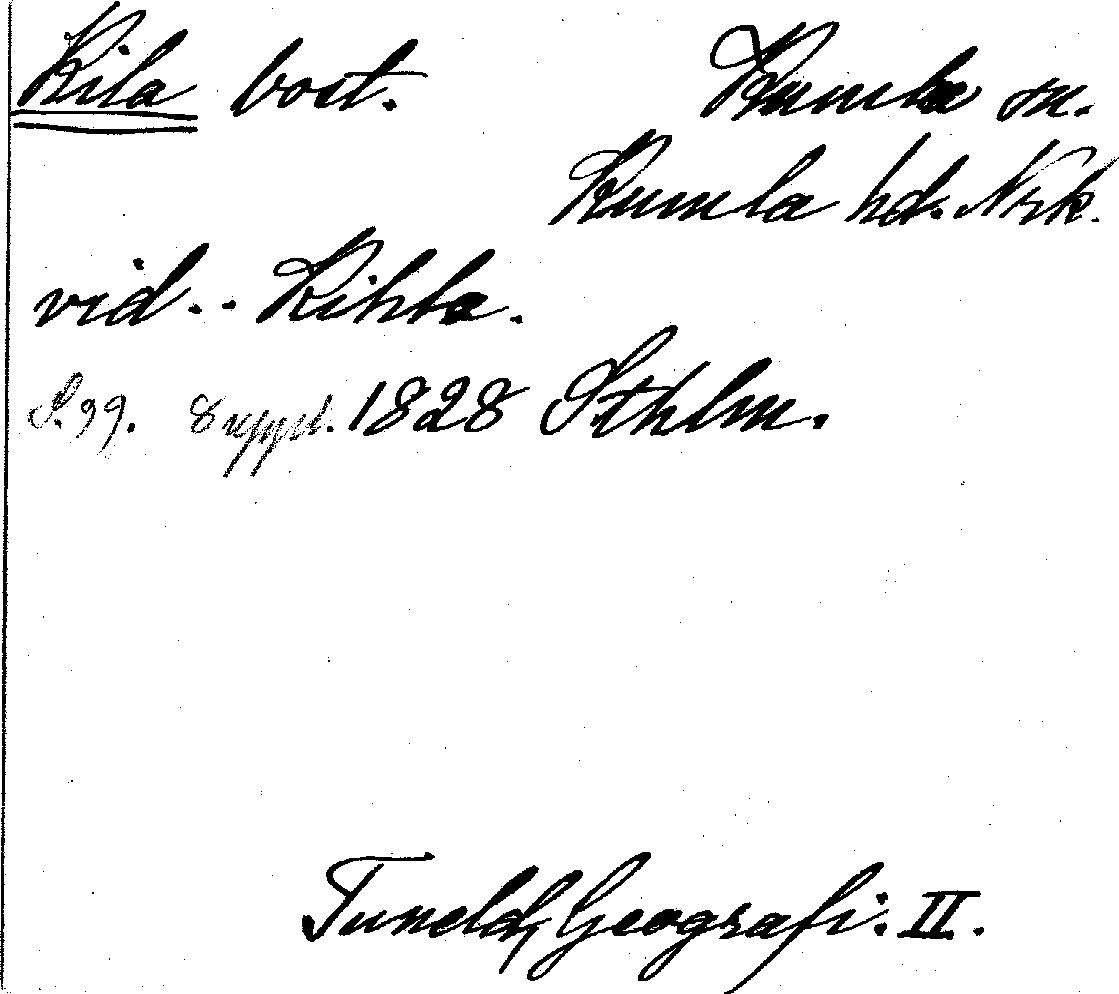 Kila bost. Kumla sn.
Kumla hd. Nrk.
vid.. Kihla.
S. 99. Suppl. 1828 Sthlm.
Tuneld, Geografi. II.